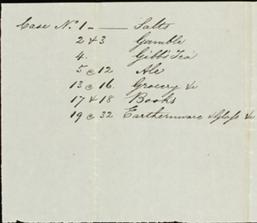 Case No. 1 - Salts
2 & 3 Gamble
4. Gibb's Tea
5 @ 12 Ale
13 @ 16. Grocery &c
17 & 18 Books
19 @ 32 Earthenware Glass &c